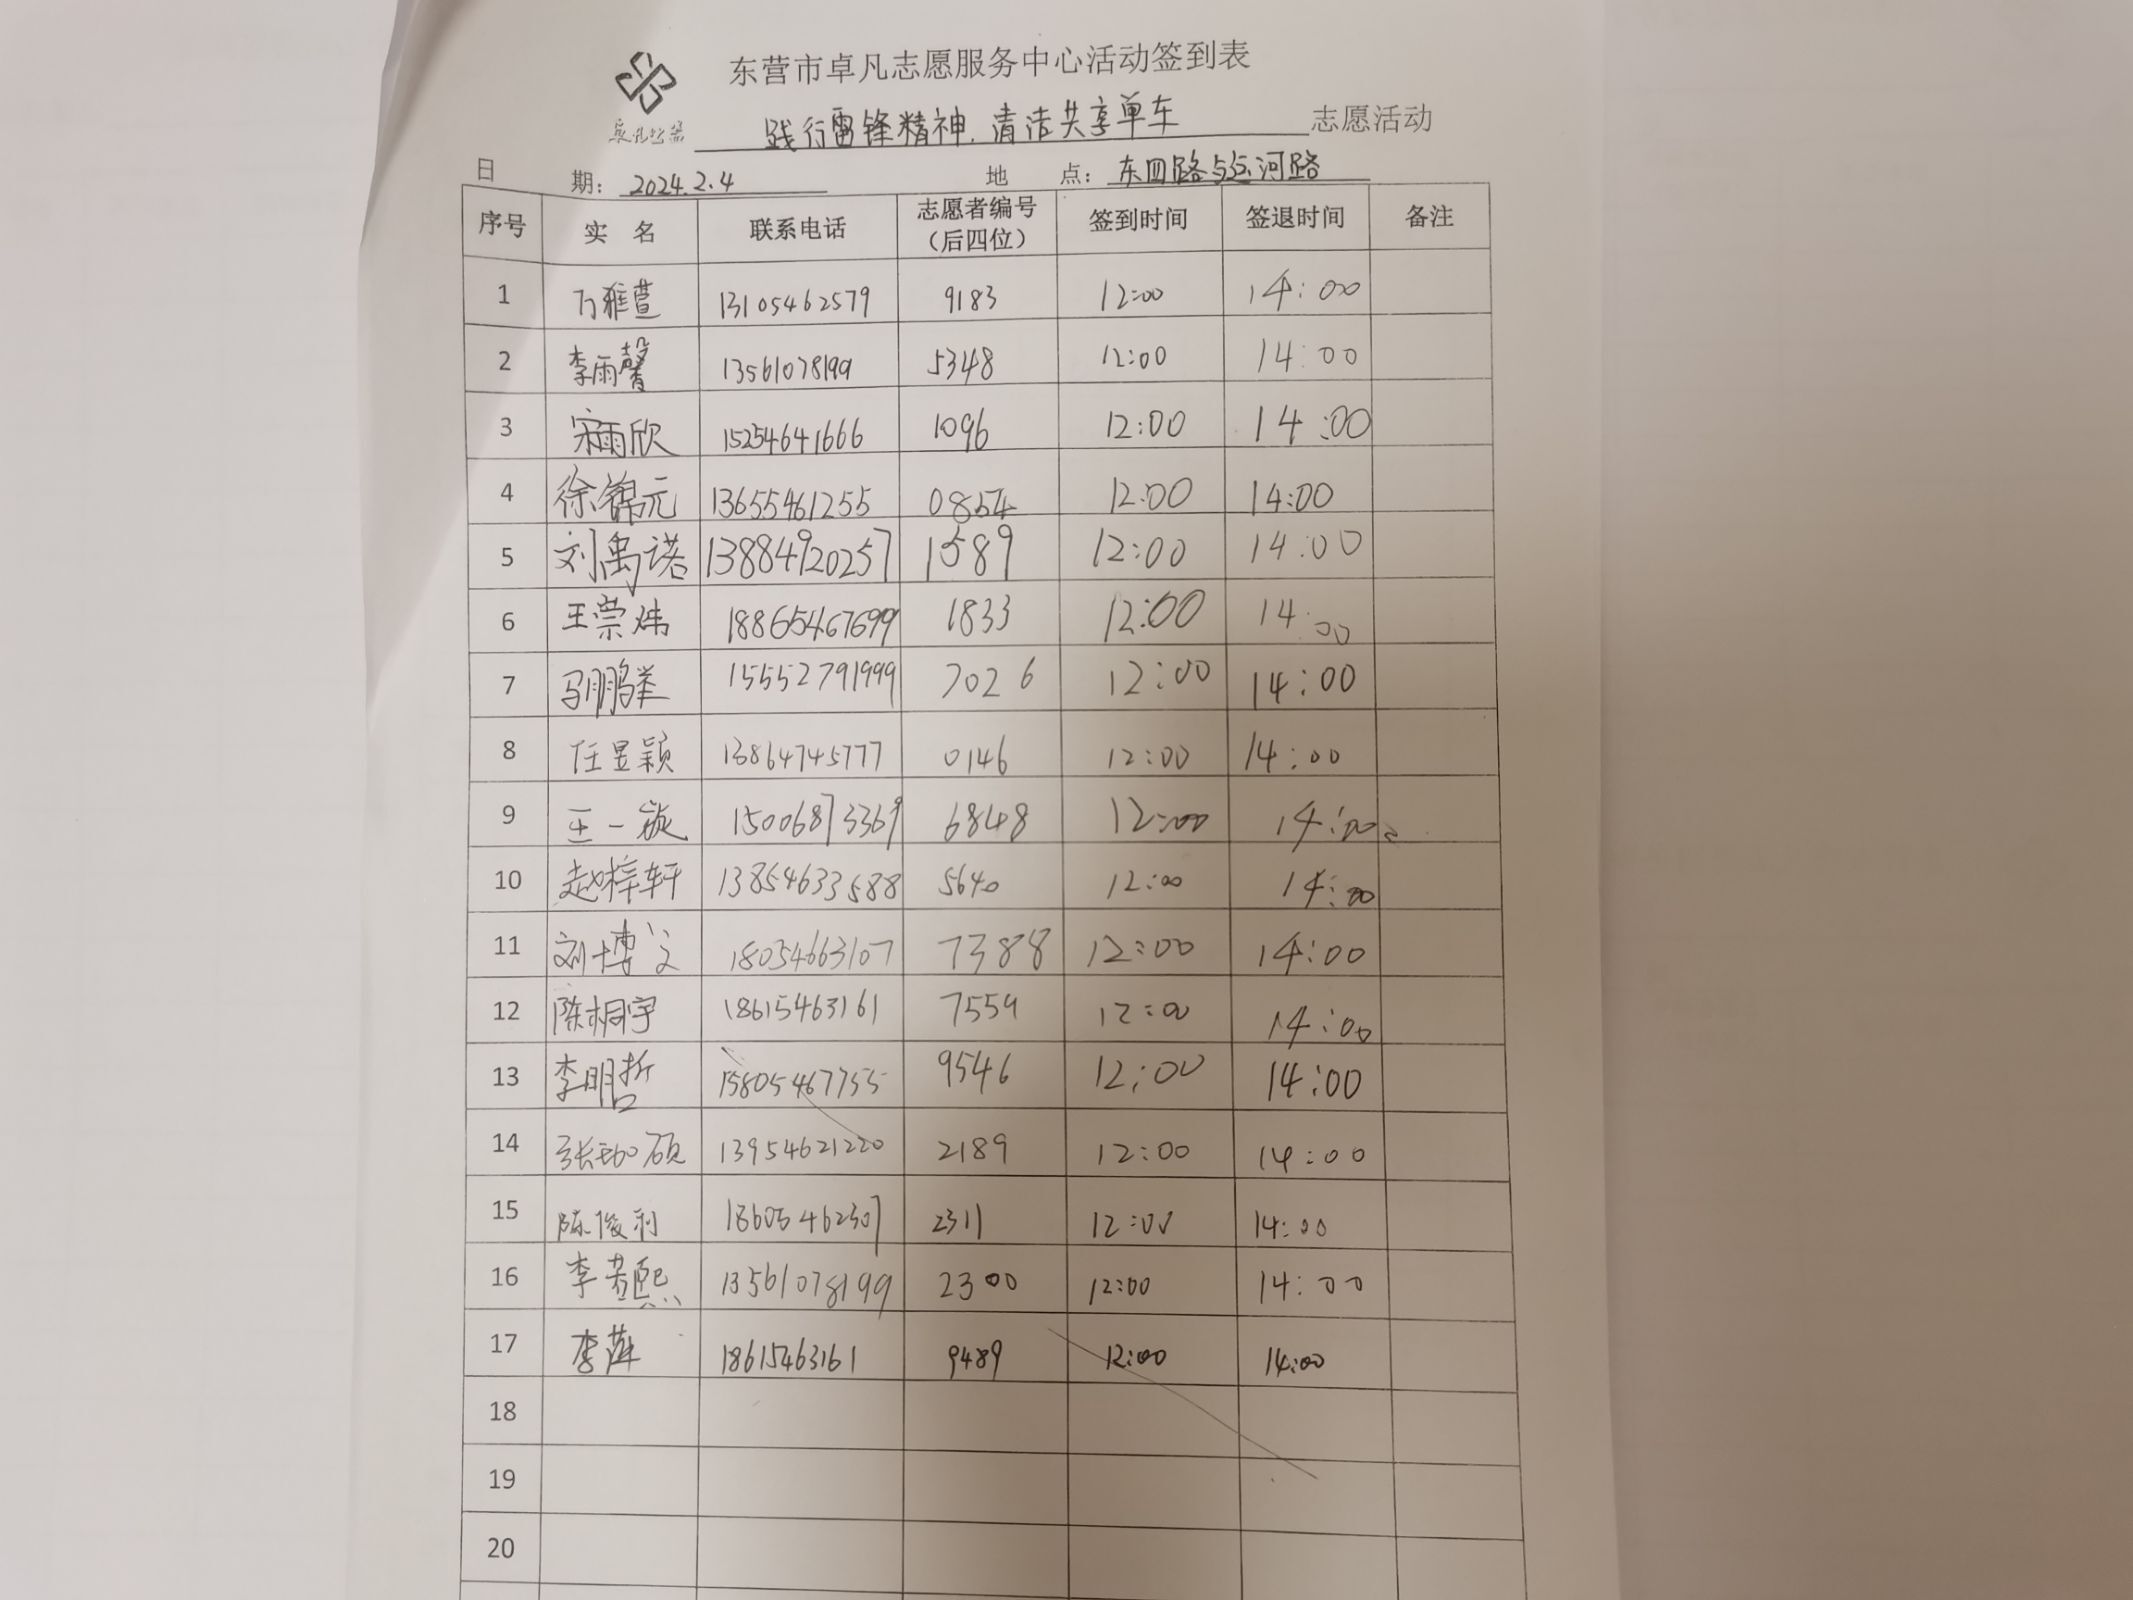 东营市卓凡志愿服务中心活动签到表
践行雷锋精神.清洁共享单车 志愿活动
日期: 2024.2.4 地点: 东四路与运河路
序号 实名 联系电话 志愿者编号（后四位） 签到时间 签退时间 备注
1 万雅萱 13105462579 9183 12:00 14:00
2 李雨馨 13561078199 5348 12:00 14:00
3 宋雨欣 15254641666 1096 12:00 14:00
4 徐锦元 13655461255 0854 12:00 14:00
5 刘禹诺 13884920257 1589 12:00 14:00
6 王崇炜 18865467699 1833 12:00 14:00
7 马鹏举 15552791999 7026 12:00 14:00
8 任昱颖 13864745777 0146 12:00 14:00
9 王一 15006873369 6848 12:00 14:00
10 赵梓轩 13854633588 5640 12:00 14:00
11 刘博文 18054663107 7388 12:00 14:00
12 陈桐宇 18615463161 7559 12:00 14:00
13 李明哲 15805467755 9546 12:00 14:00
14 张珈硕 13954621220 2189 12:00 14:00
15 陈俊利 18605462307 2311 12:00 14:00
16 李熙 13561078199 2300 12:00 14:00
17 李萍 18615463161 9489 12:00 14:00
18
19
20